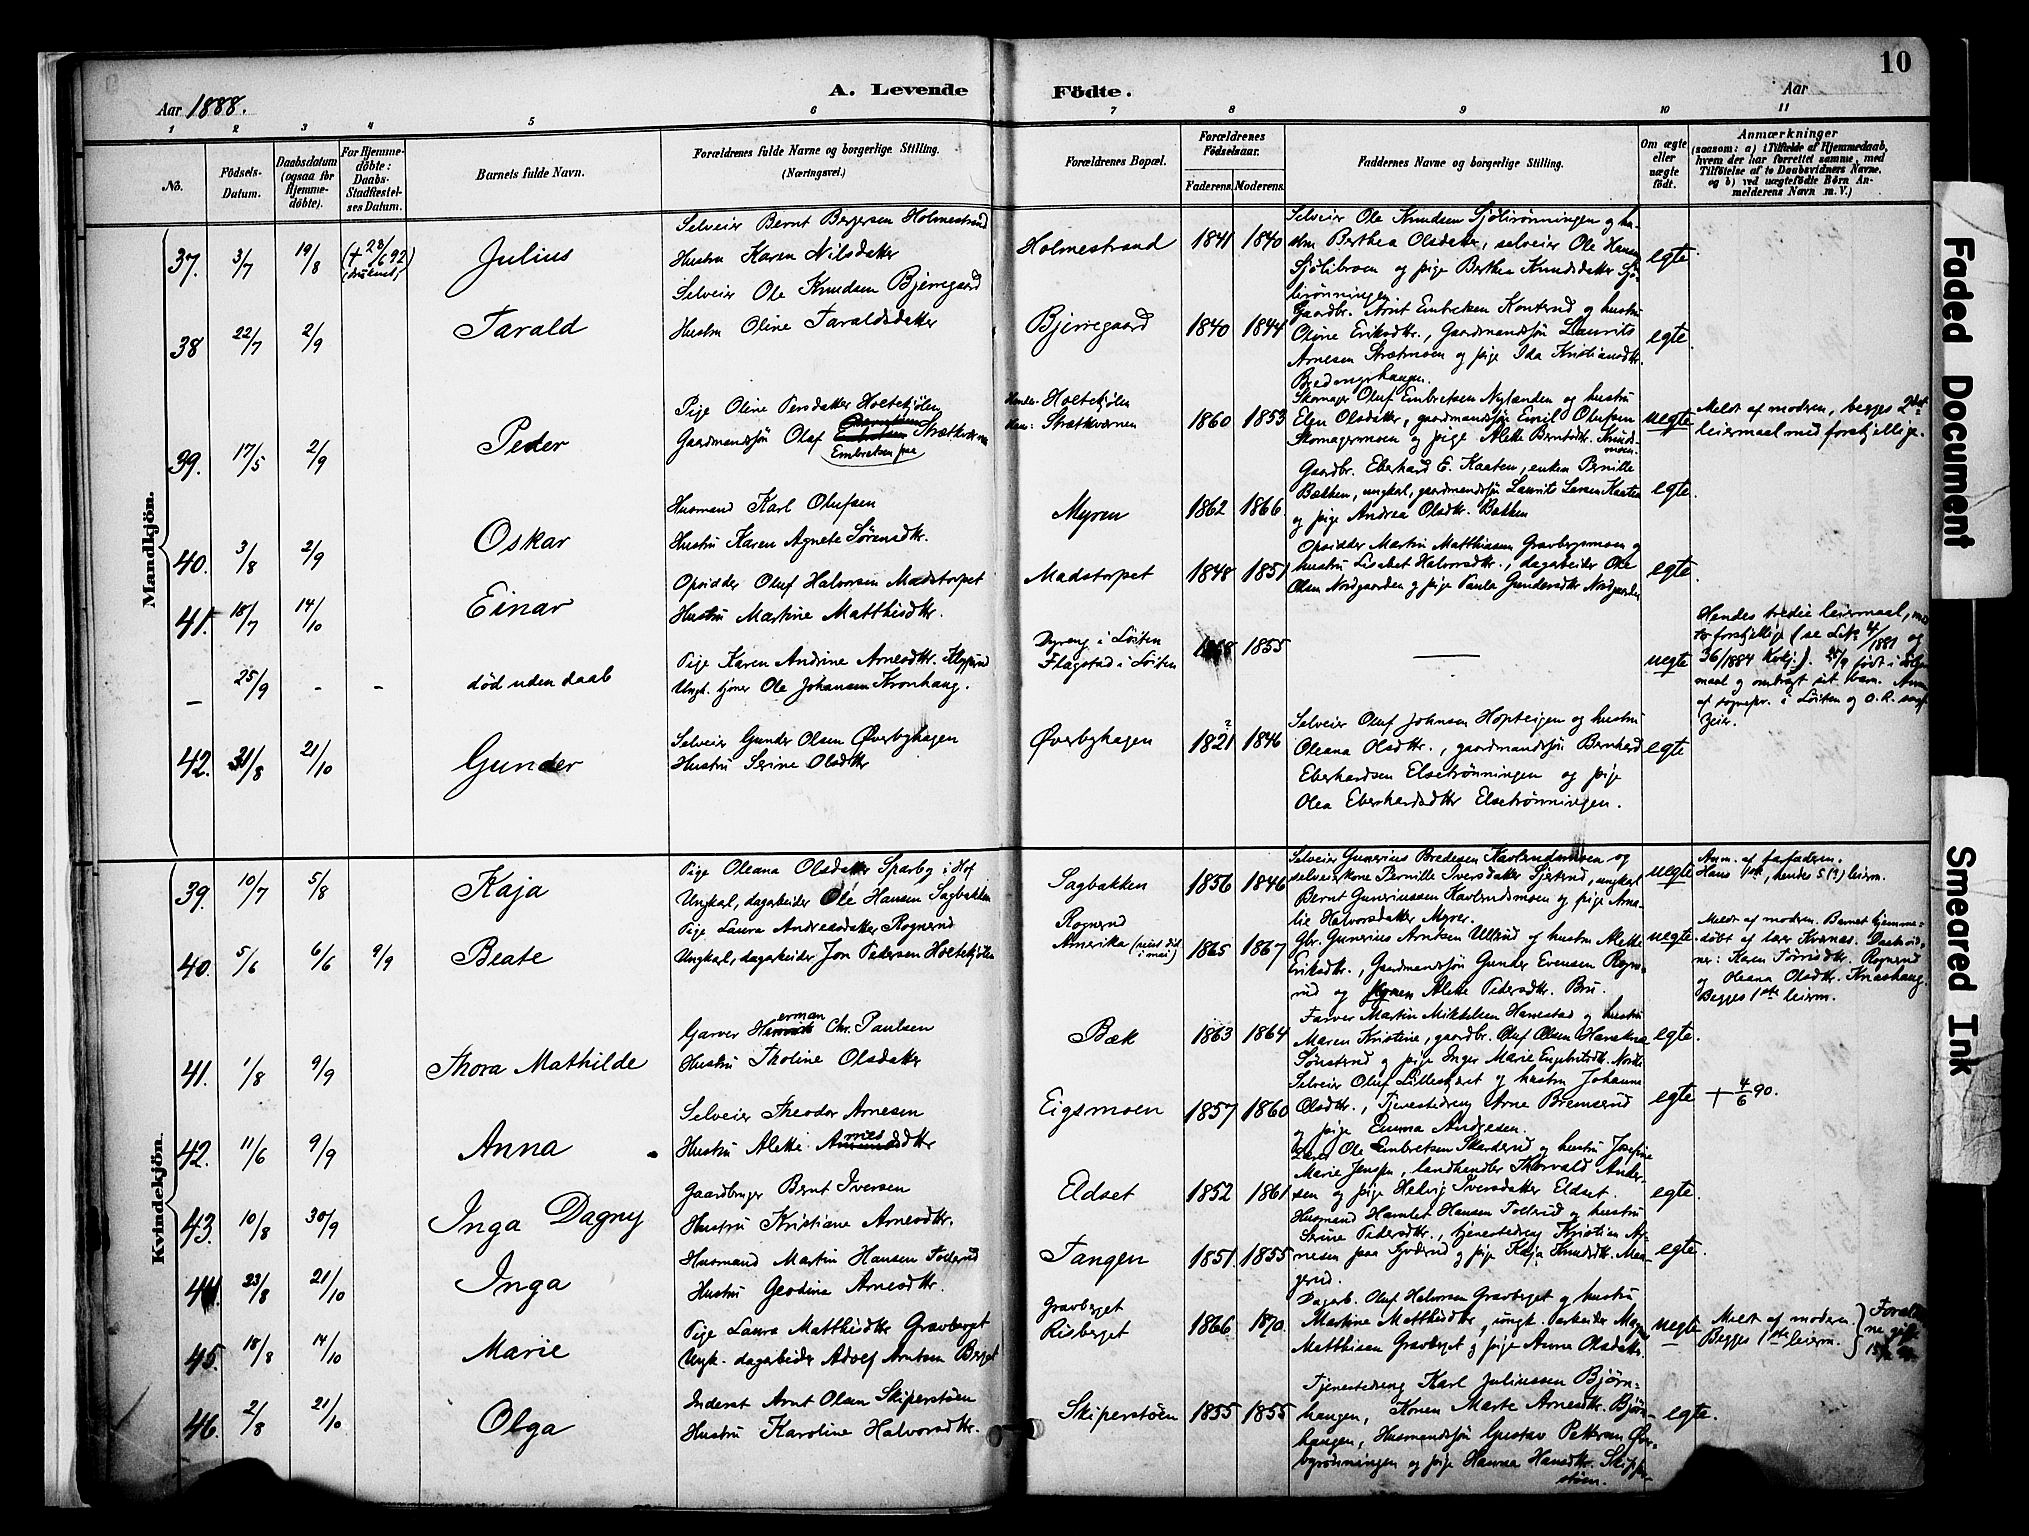 10
Aar 1888.
A. Levende Födte.
Aar
1 2 3 4 5 6 7 8 9 10 11
No.
Födsels-Datum.
Daabsdatum (ogsaa for Hjemme-döbte).
For Hjemme-döbte: Daabs-Stadfæstel-ses Datum.
Barnets fulde Navn.
Forældrenes fulde Navne og borgerlige Stilling. (Næringsvei.)
Forældrenes Bopæl.
Forældrenes Födselsaar.
Faderens. Moderens.
Faddernes Navne og borgerlige Stilling.
Om ægte eller uægte födt.
Anmærkninger
(saasom: a) i Tilfælde af Hjemmedaab, hvem der har forrettet samme, med Tilföielse af to Daabsvidners Navne, og b) ved uægtefödte Börn An-melderens Navn m. V.)
Mandkjön.
37. 3/7 19/8 (+ 28/6 92) Julius
Selveier Bernt Bergersen Holmestrand
Hustru Karen Nilsdatter
Holmestrand 1841 1840
Selveier Ole Knudsen Sjölirönningen og hu-
stru Berthea Olsdatter, selveier Ole Hansen
Sjölibroen og pige Berthea Knudsdatter Sjö-
lirönningen
egte.
38 22/7 2/9 Tarald
Selveier Ole Knudsen Bjerregaard
Hustru Oline Taraldsdatter
Bjerregaard 1840 1844
Gaardbr. Arnt Embretsen Konterud og hustru
Oline Eriksdtr., Gaardmandssön Laurits
Arnesen Strætmoen og pige Ida Kristiansdtr.
egte.
39. 17/5 2/9 Peder
Pige Oline Persdatter Holtekjölen
Gaardmandssön Olaf Embretsen paa Strætkværnen
Hendes: Holtekjölen
Hans: Strætkværnen
1860 1853
Skomager Oluf Embretsen Nylanden og hustru
Elen Olsdatter, gaardmandssön Emil Olufsen
Skomagermoen og pige Alette Berntsdtr. Knuds-
moen.
uegte
Meldt af moderen, begges 2det
leiermaal med forskjellige.
40. 3/8 2/9 Oskar
Husmand Karl Olufsen
Hustru Karen Agnete Sörensdtr.
Myren 1862 1866
Gaardbr. Eberhard E. Kaaten, enken Pernille
Bakken, ungkarl, gaardmandssön Laurits Larsen Kaaten
og pige Andrea Olsdtr. Bakken
egte.
41. 18/7 14/10 Einar
Opsidder Oluf Halvorsen Madstorpet
Hustru Martine Matthisdtr.
Madstorpet 1848 1851
Opsidder Martin Matthiasen Gravbergsmoen og
hustru Lisabet Halvorsdtr., dagarbeider Ole
Olsen Nordgaarden og pige Paula Gundersdtr Nordgaarden
egte.
- 25/9 - - död uden daab
Pige Karen Andrine Arnesdtr.
Ungk. tjener Ole Johansen Kronhaug.
i Löiten
Flagstad i Löiten
1855
uegte
Hendes tredie leiermaal, med
to forskjellige (se Litr. 4/1881 og
36/1884 Kvkj.). 25/9 födt i
42. 31/8 21/10 Gunder
Selveier Gunder Olsen Øverbyhagen
Hustru Serine Olsdtr
Øverbyhagen 1821 ? 1846
Selveier Oluf Johnsen Hopteigen og hustru
Oleana Olsdtr., gaardmandssön Bernhard
Eberhardsen Elsetrönningen og pige
Olea Eberhardsdtr Elsetrönningen.
egte
Kvindekjön.
39. 10/7 5/8 Kaja
Pige Oleana Olsdatter Sparby i Hof
Ungkarl, dagarbeider Ole Hansen Sagbakken
Sagbakken 1856 1846
Selveier Gunerius Bredesen Kavlendsmoen og
selveierkone Pernille Iversdatter Sjerud, ungkarl
Bernt Guneriussen Kavlendsmoen og pige Ama-
lie Halvorsdatter Myrer.
uegte
Anm. af farfaderen.
Hans 1ste, hendes 5 (?) leierm.
40. 5/6 6/6 9/9 Beate
Pige Laura Andreasdatter Rognerud
Ungkarl, dagarbeider Jon Pedersen Holtekjölen
Rognerud
Amerika (reist did i mai)
1865 1867
Gbr. Gunerius Arntsen Ullerud og hustru Alette
Eriksdtr., Gaardmandssön Gunder Evensen Rogne-
rud og Alette Pedersdtr. Bru.
uegte
Meldt af moderen. Barnet hjemme-
döbt af lær. Kværnæs. Daabsvid-
ner: Karen Torrisdtr. Rognerud
og Oleana Olsdtr. Knashaug
Begges 1ste leierm.
41. 1/8 9/9 Thora Mathilde
Garver Herman Chr. Paulsen
Hustru Tholine Olsdatter
Bæk 1863 1864
Farver Martin Mikkelsen Hanestad og hustru
Maren Kristine, gaardbr. Oluf Olsen
Sönsterud og pige Inger Marie Engebretsdtr.
egte.
42. 11/6 9/9 Anna
Selveier Theodor Arnesen
Hustru Alette Arnesdtr
Eigsmoen 1857 1860
Selveier Oluf Lilleskjæret og hustru Johanne
Olsdtr., Tjenestedreng Arne Bremserud
og pige Emma Andresen.
egte
+ 4/6 90.
43. 10/8 30/9 Inga Dagny
Gaardbruger Bernt Iversen
Hustru Kristiane Arnesdtr.
Eldset 1852 1861
Lærer Ole Embretsen Skarderud og hustru Josefine
Marie Jensen, landhandler Thorvald Ander-
sen og pige Helvig Iversdatter Eldset.
egte.
44. 23/8 21/10 Inga
Husmand Martin Hansen Tollerud
Hustru Geodine Arnesdtr.
Tangen 1851. 1855
Husmand Hamlet Hansen Tollerud og hustru
Serine Pedersdtr., tjenestedreng Kristian Ar-
nesen paa og pige Kaja Knudsdtr. Ma-
gerud.
egte.
45. 18/8 14/10 Marie
Pige Laura Matthisdtr Gravberget
Ungk. dagarbeider Adolf Arntsen Berget
Gravberget
Risberget
1866 1870.
Dagarb. Oluf Halvorsen Gravberget og hustru
Martine Matthisdtr, ungk. Parkeider
Matthisen Gravberget og pige Anne Olsdatter
uegte
Meldt af moderen
Begges 1ste leierm.
46. 2/8 21/10 Olga
Inderst Arnt Olsen Skiperstöen
Hustru Karoline Halvorsdtr.
Skiperstöen 1855 1855
Tjenestedreng Karl Juliussen Björn-
haugen, Konen Marte Arnesdtr. Björn-
haugen, Husmandssön Gustav Pettersen Øver-
byrönningen og pige Hanna Hansdtr. Skipper-
stöen.
egte.
Faded Document
Smeared Ink